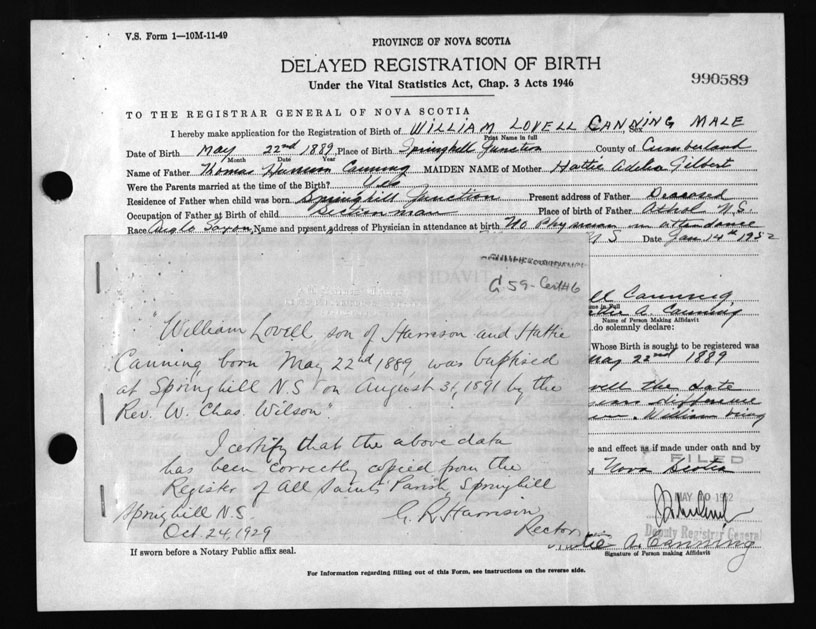 V.S. Form 1—10M-11-49
PROVINCE OF NOVA SCOTIA
DELAYED REGISTRATION OF BIRTH
Under the Vital Statistics Act, Chap. 3 Acts 1946
990589
TO THE REGISTRAR GENERAL OF NOVA SCOTIA
I hereby make application for the Registration of Birth of WILLIAM LOVELL CANNING Sex MALE
Print Name in full
Date of Birth May 22nd 1889, Place of Birth Springhill Junction County of Cumberland
Month Date Year
Name of Father Thomas Harrison Canning MAIDEN NAME of Mother Hattie Adelia Gilbert
Were the Parents married at the time of the Birth? Yes
Residence of Father when child was born Springhill Junction Present address of Father Deceased
Occupation of Father at Birth of child Sectionman Place of birth of Father Athol N.S.
Race Anglo Saxon Name and present address of Physician in attendance at birth No Physician in attendance
N S Date Jan 14th 1952
AFFIDAVIT
G 59- Cert46
ll Canning,
me in Full
A. Canning
Name of Person Making Affidavit
do solemnly declare:
Whose Birth is sought to be registered was
May 22nd 1889
"William Lovell, son of Harrison and Hattie
Canning, born May 22nd 1889, was baptised
at Springhill N.S. on August 31, 1891 by the
Rev. W. Chas. Wilson".
the date
difference
William being
I certify that the above data
has been correctly copied from the
Register of All Saints Parish, Springhill
Springhill N.S.
Oct. 24, 1929
G. R. Harrison
Rector
e and effect as if made under oath and by
FILED
of Nova Scotia
MAY 1952
Deputy Registrar General
tie A. Canning
Signature of Person making Affidavit
If sworn before a Notary Public affix seal.
For Information regarding filling out of this Form, see Instructions on the reverse side.